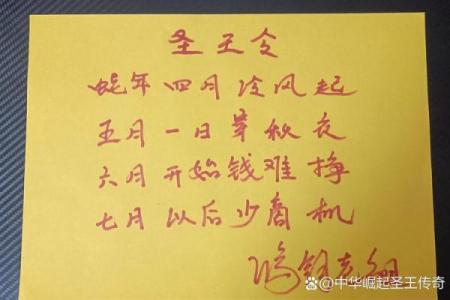 圣王令
蛇年四月冷风起
五月一日穿秋衣
六月开始钱难挣
七月以后少商机
@中华崛起圣王传奇